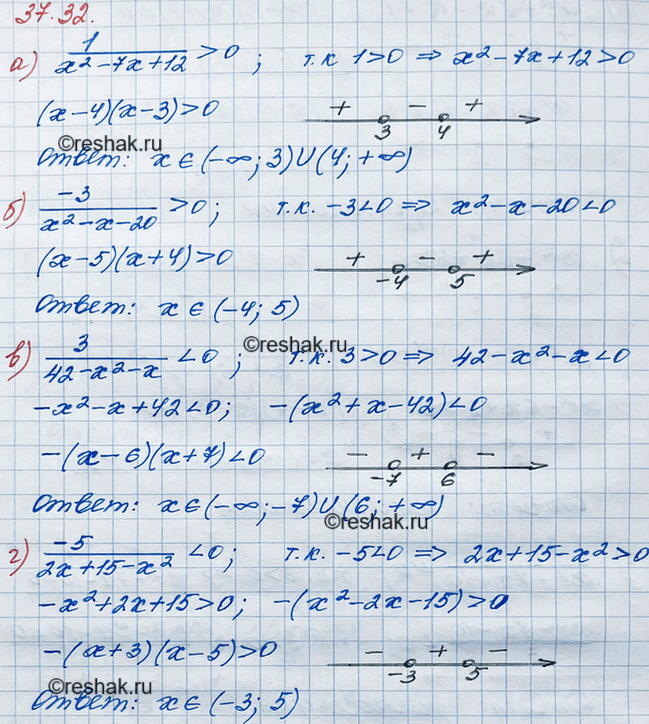 37.32.
а) 1/(x²-7x+12) >0 ; т.к 1>0 ⇒ x²-7x+12>0
(x-4)(x-3)>0 + - + 3 4
©reshak.ru
Ответ: x∈(-∞; 3)∪(4; +∞)
б) -3/(x²-x-20) >0; т.к. -3<0 ⇒ x²-x-20<0
(x-5)(x+4)>0 + - + -4 5
Ответ: x∈(-4; 5)
©reshak.ru
в) 3/(42-x²-x) <0 ; т.к. 3>0 ⇒ 42-x²-x<0
-x²-x+42<0; -(x²+x-42)<0
-(x-6)(x+7)<0 - + - -7 6
Ответ: x∈(-∞; -7)∪(6; +∞)
©reshak.ru
г) -5/(2x+15-x²) <0; т.к. -5<0 ⇒ 2x+15-x²>0
-x²+2x+15>0; -(x²-2x-15)>0
-(x+3)(x-5)>0 - + - -3 5
©reshak.ru
Ответ: x∈(-3; 5)